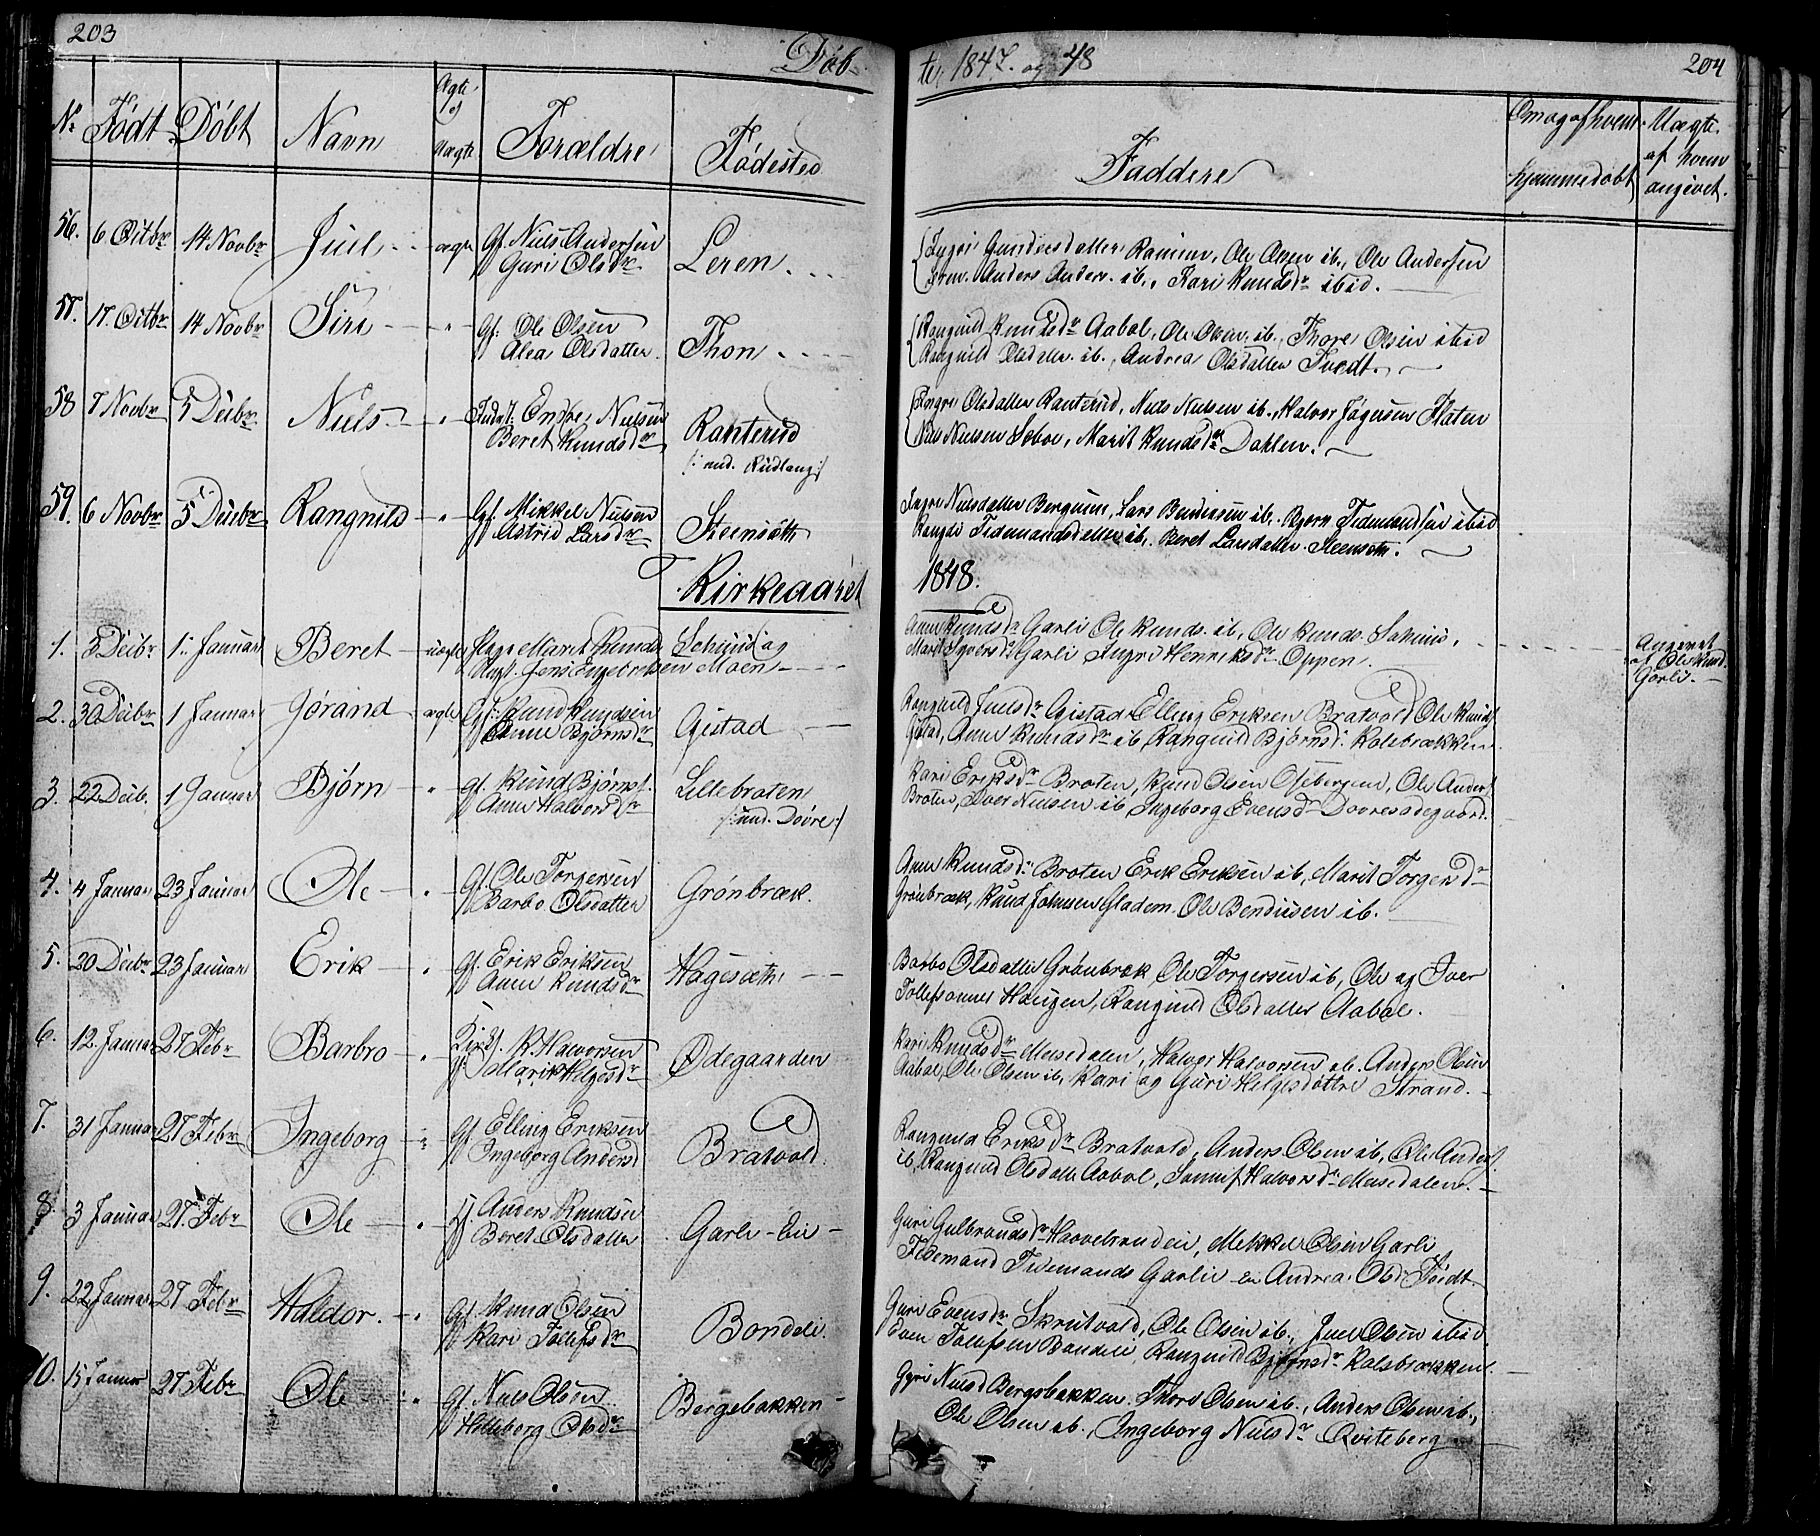 203
Døb-
te, 1847. og 48
204
No Født Døbt Navn Ægte el uægte Forældre Fødested
Faddere
Om og af hvem hjemmedøbt
Uægte. af hvem angivet.
56. 6 Octbr 14 Novbr Juel ægte Gf. Niels Andersen
Guri Olsdr Leren.
Gundersdatter Ramen, Ole Olsen ib., Ole Andersen
Anders Anders. ib., Kari Knudsdr ibid.
57. 17. Octbr 14 Novbr Siri - " - Gf. Ole Olsen
Olsdatter. Thon.
Rangnild Knudsdr Aabøl, Ole Olsen ib., Thore Olsen ibid
Rangnild Olsdatter ib., Andrea Olsdatter
58 7 Novbr 5 Decbr Niels - " - Nielsen
Beret Knudsdr Ranterud
/: und. Rudlang:/
Ingri Olsdatter Ranterud, Niels Nielsen ib., Halvor Flaten
Niels Nielsen Marit Knudsdr Dahlen.
59. 6 Novbr 5 Decbr Rangnild - " - Gf. Mikkel Nielsen
Astrid Larsdr Steensæth
Ingri Nielsdatter Bergum, Lars ib., Bjørn Tidemandsen ibid
Tidemandsdatter ib., Beret Larsdatter Steensæth.
Kirkeaaret
1848.
1. 5 Decbr 1. Januar Beret uægte Pige Marit Knudsd
Jens Engebretsen Moen
Anne Knudsdr Garli Ole Knuds. ib, Ole Knuds.
Marit Garli Ingri Henriksdr Oppen.
Angivet
af Ole Knud.
Garli.
2. 30 Decbr 1 Januar Jørand ægte Gf. Knud Knudsen
Anne Bjørnsdr Gistad
Rangnild Juelsdr Gistad, Elling Eriksen Bratvold, Ole Knuds.
Gistad, Anne Knudsdr ib, Rangnild Bjørnsd. Kalsbrækken.
3. 22 Decb. 1 Januar Bjørn " Gf. Knud Bjørns.
Anne Halvorsdr Lillebraten
/: und. Dovre:/
Kari Eriksdr Braten, Knud Olsen Ole Anders.
Braten, Iver Nielsen ib, Ingeborg Evensdr
4. 4 Januar 23 Januar Ole - " Gf. Ole Torgersen
Barbo Olsdatter Grønbræk.
Anne Knudsd. Braten Erik Eriksen ib, Marit Torgersdr
Grønbræk, Knud Johnsen Ole ib.
5. 20 Decbr 23 Januar Erik - " Gf. Erik Eriksen
Anne Knudsdr Hagesæth
Barbo Olsdatter Grønbræk, Ole Torgersen ib, Ole og Iver
Tollefsønner Haugen, Rangnild Olsdatter Aabøl.
6. 12. Januar 27 Febr Barbro - " K. Halvorsen
Marit Helgesdr Ødegaarden
Kari Knudsdr Musedalen, Halvor Halvorsen ib. Anders Olsen
Aabøl, Ole Olsen ib, Kari og Guri Helgesdøttre Strand.
7. 31 Januar 27 Febr Ingeborg " Gf. Elling Eriksen
Ingeborg Andersd Bratvold.
Rangnild Eriksdr Bratvold, Anders Olsen ib, Ole Anders.
ib, Rangnild Olsdatter Aabøl, Halvorsdr Musedalen.
8. 3 Januar 27. Febr Ole - " Anders Knudsen
Beret Olsdatter Garli-Eie
Guri Gulbrandsdr Mikkel Olsen Garli
Tidemand Tidemands Garlie Andrea Olsd.
9. 22 Januar 27 Febr Haldor. " Gf. Knud Olsen
Kari Tollefsdr Bondeli.
Guri Evensdr Skrutvold, Ole Olsen ib., Juel Olsen ibid.
Even Tollefsen Bondeli, Rangnild Bjørnsdr Kalsbrækken.
10. 15 Januar 27 Febr Ole " Gf. Niels Olsen
Olsdr Bergebakken
Gyri Nielsd Bergsbakken. Thore Olsen ib., Anders Olsen ib.,
Ole Olsen ib. Ingeborg Nielsdr Qviteberg